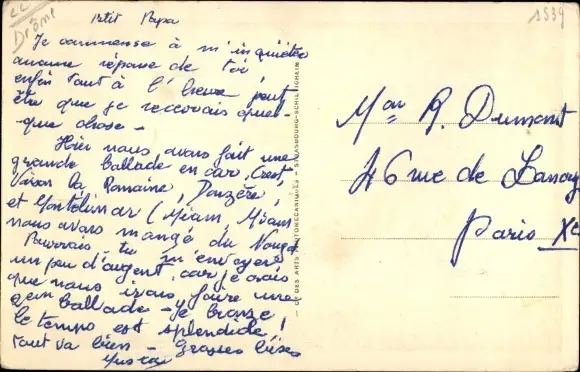 Drôme
1539
Petit Papa
Je commense à m'inquiéter
aucune réponse de toi,
enfin tout à l'heure peut
être que je reccovrais quel-
-que chose -
Hier nous avons fait une
grande ballade en car, Crest,
Vaison la Romaine, Donzère,
et Montelimar (Miam, Miam
nous avons mangé du Nougat
Pourrais-tu m'envoyer
un peu d'argent, car je crois
que nous irons faire une
ballade - Je bronze
le temps est splendide !
tout va bien - Grosses bises
- CIE DES ARTS PHOTOMÉCANIQUES - STRASBOURG-SCHILTIGHEIM
Mr R. Dumont
46 rue de Lancry
Paris Xe